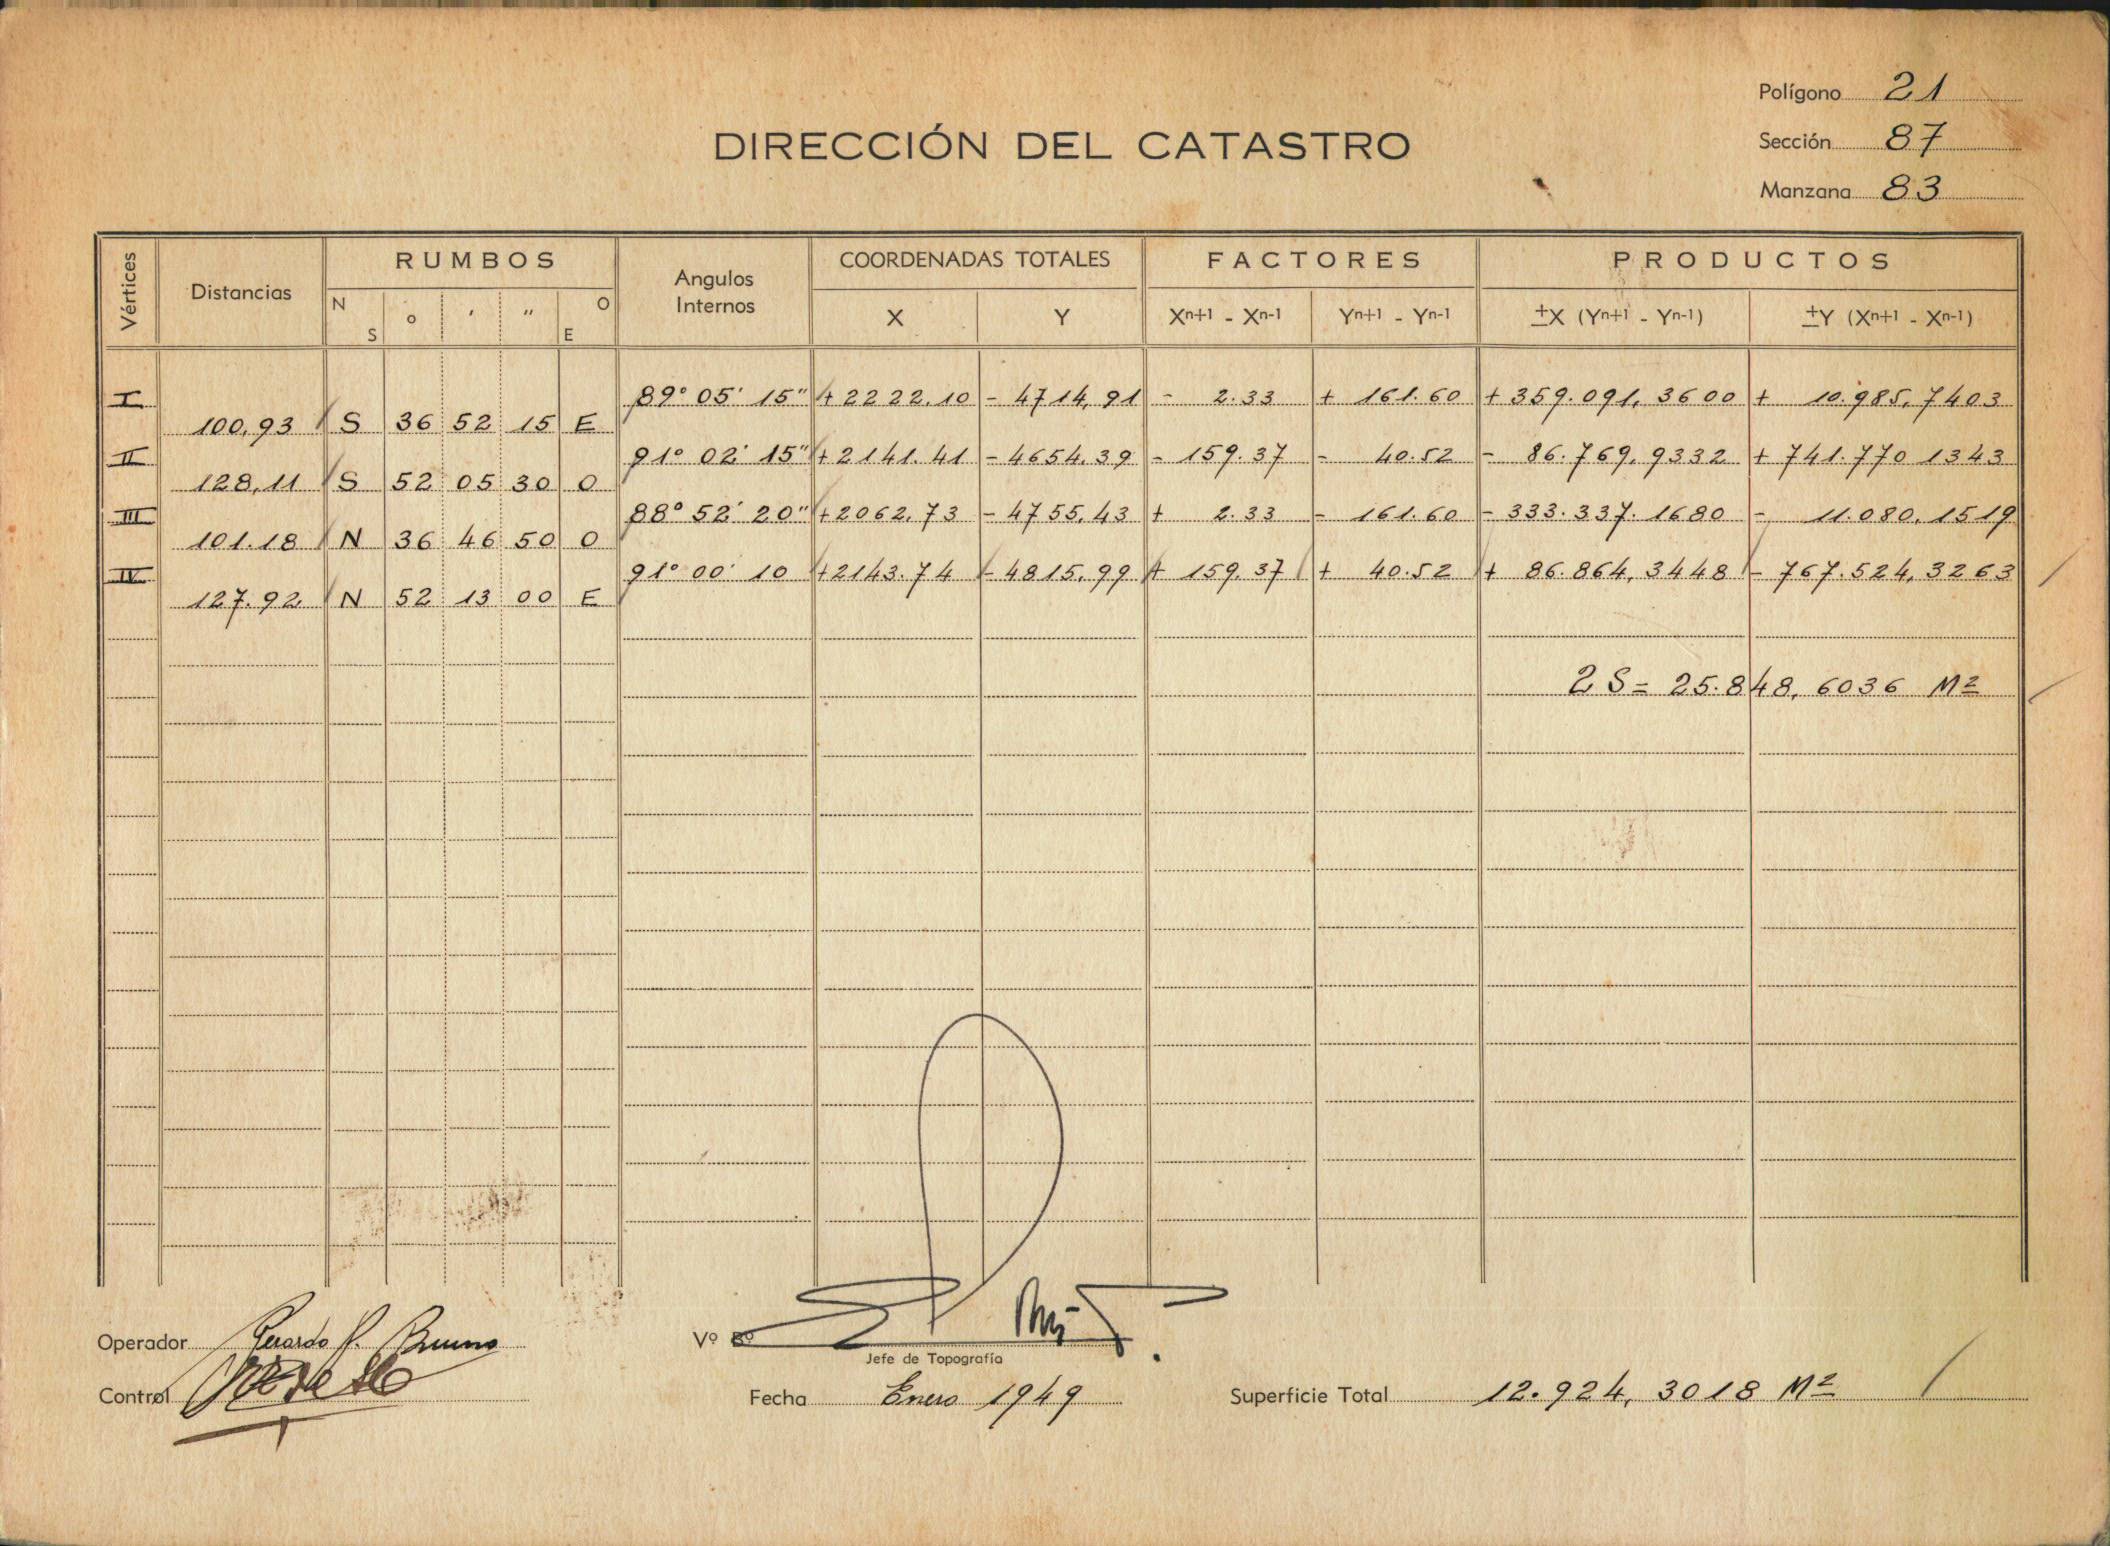 Polígono 21
DIRECCIÓN DEL CATASTRO
Sección 87
Manzana 83
Vértices Distancias RUMBOS Angulos Internos COORDENADAS TOTALES FACTORES PRODUCTOS
N S o ' " O E X Y Xn+1 - Xn-1 Yn+1 - Yn-1 ±X (Yn+1 - Yn-1) ±Y (Xn+1 - Xn-1)
I 89° 05' 15" +2222.10 - 4714,91 - 2.33 + 161.60 + 359.091,3600 + 10.985,7403
100,93 S 36 52 15 E
II 91° 02' 15" +2141.41 - 4654.39 - 159.37 - 40.52 - 86.769,9332 + 741.770 1343
128,11 S 52 05 30 O
III 88° 52' 20" +2062,73 - 4755,43 + 2.33 - 161.60 - 333.337.1680 - 11.080,1519
101.18 N 36 46 50 O
IV 91° 00' 10 +2143.74 - 4815,99 + 159.37 + 40.52 + 86.864,3448 - 767.524,3263
127.92 N 52 13 00 E
2 S = 25.848,6036 M2
Operador Gerardo P. Bruno
Vº Bº
Jefe de Topografía
Control
Fecha Enero 1949
Superficie Total 12.924,3018 M2